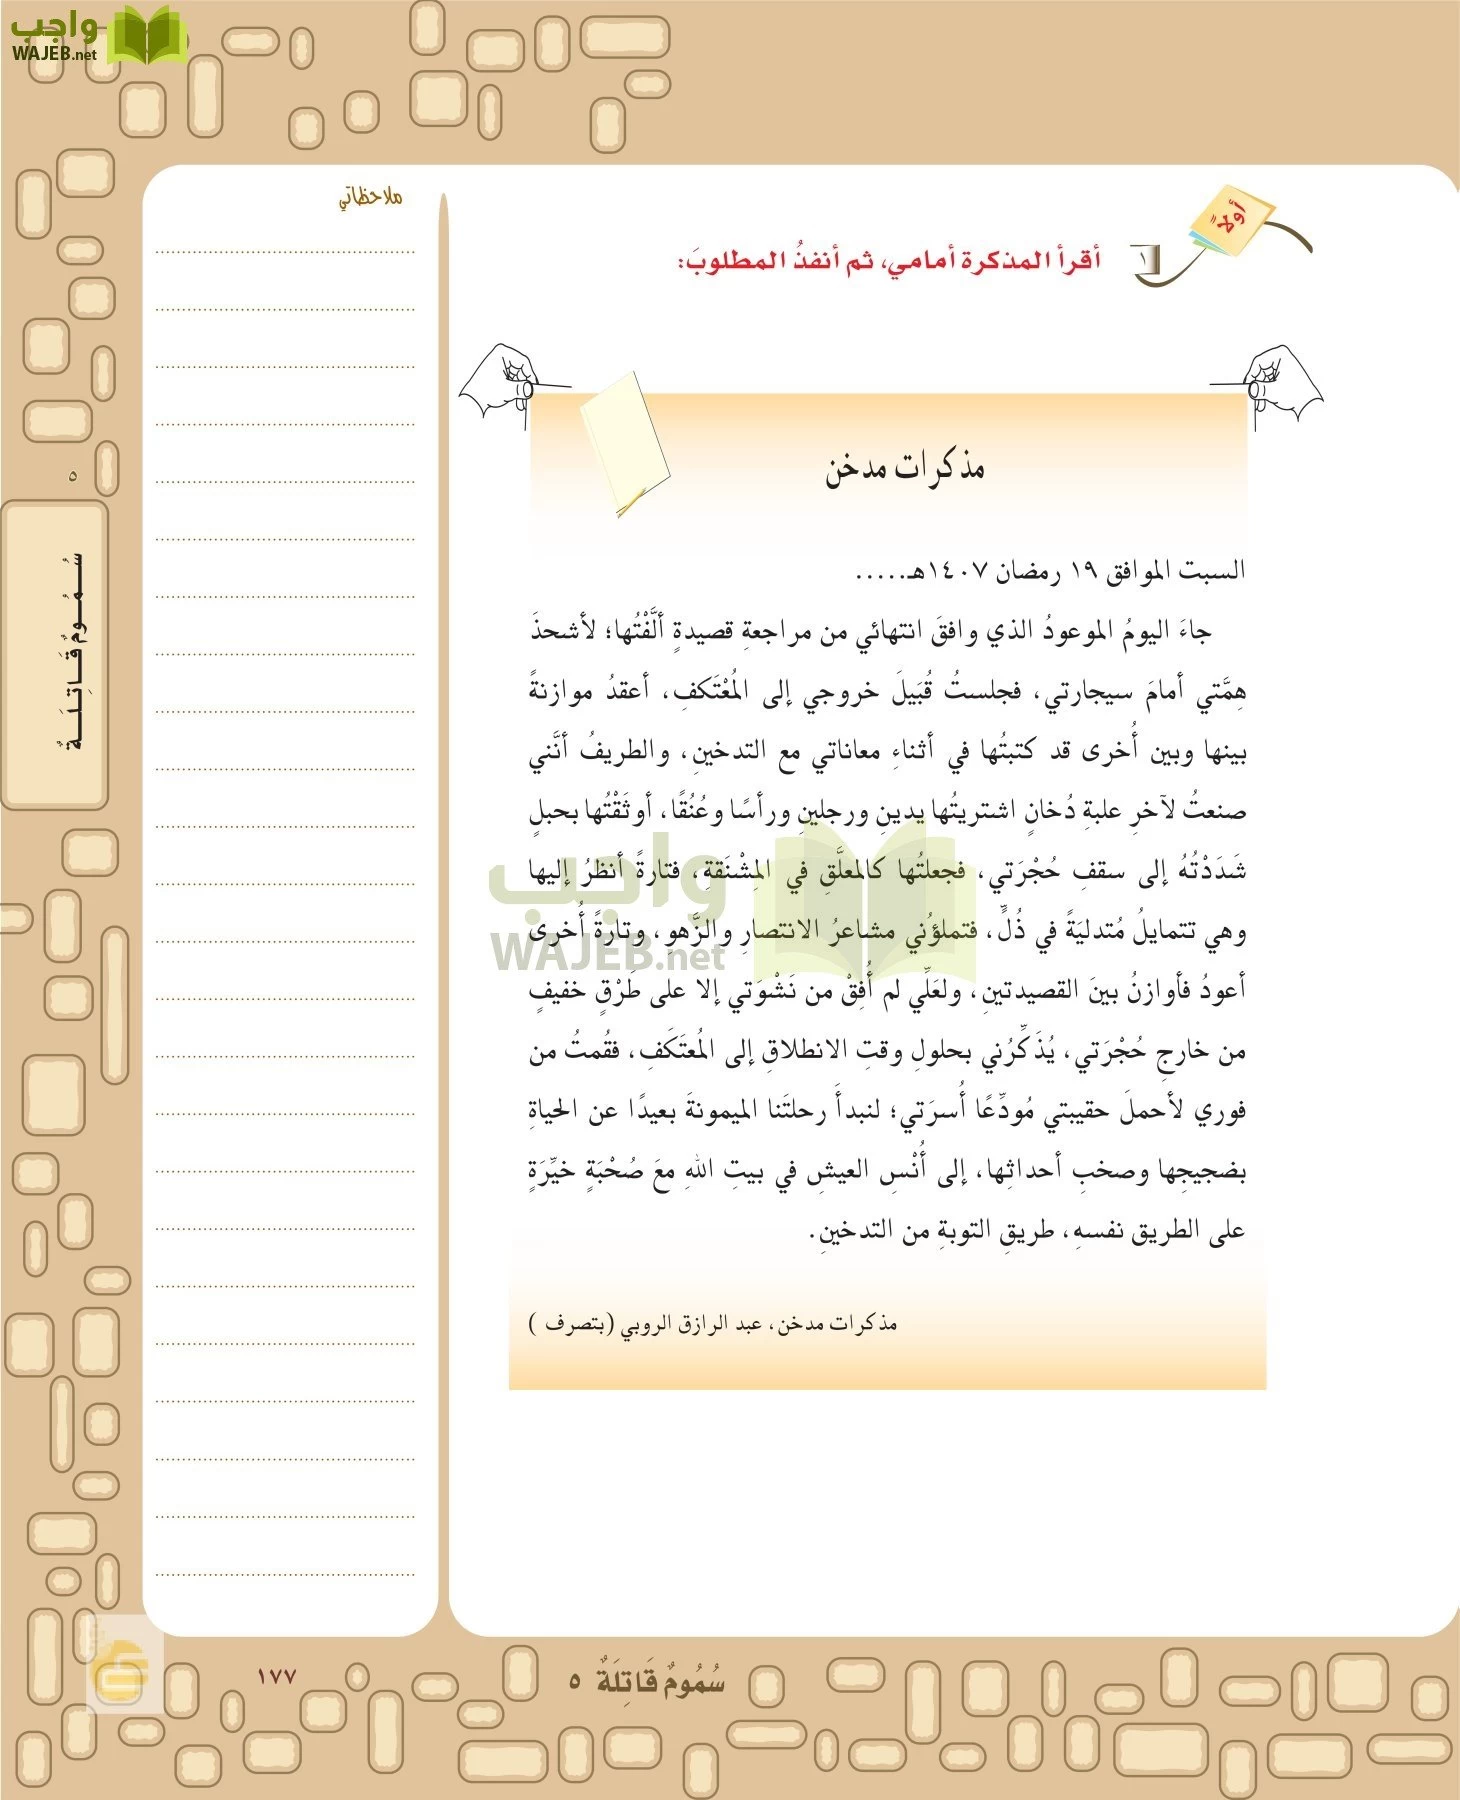 واجب
WAJEB.net
أولاً
١ أقرأ المذكرة أمامي، ثم أنفذُ المطلوبَ:
مذكرات مدخن
السبت الموافق ١٩ رمضان ١٤٠٧هـ.....
جاءَ اليومُ الموعودُ الذي وافقَ انتهائي من مراجعةِ قصيدةٍ ألَّفْتُها؛ لأشحذَ
هِمَّتي أمامَ سيجارتي، فجلستُ قُبَيلَ خروجي إلى المُعْتَكفِ، أعقدُ موازنةً
بينها وبين أُخرى قد كتبتُها في أثناءِ معاناتي مع التدخينِ، والطريفُ أنَّني
صنعتُ لآخرِ علبةِ دُخانٍ اشتريتُها يدينِ ورجلينِ ورأسًا وعُنُقًا، أوثَقْتُها بحبلٍ
شَدَدْتُهُ إلى سقفِ حُجْرَتي، فجعلتُها كالمعلَّقِ في المِشْنَقةِ، فتارةً أنظرُ إليها
وهي تتمايلُ مُتدليَةً في ذُلٍّ، فتملؤُني مشاعرُ الانتصارِ والزَّهوِ، وتارةً أُخرى
أعودُ فأوازنُ بينَ القصيدتينِ، ولعَلِّي لم أُفِقْ من نَشْوَتي إلا على طَرْقٍ خفيفٍ
من خارجِ حُجْرَتي، يُذَكِّرُني بحلولِ وقتِ الانطلاقِ إلى المُعتَكَفِ، فقُمتُ من
فوري لأحملَ حقيبتي مُودِّعًا أُسرَتي؛ لنبدأَ رحلتَنا الميمونةَ بعيدًا عن الحياةِ
بضجيجِها وصخبِ أحداثِها، إلى أُنْسِ العيشِ في بيتِ اللهِ معَ صُحْبَةٍ خيِّرَةٍ
على الطريق نفسهِ، طريقِ التوبةِ من التدخينِ.
مذكرات مدخن، عبد الرازق الروبي (بتصرف )
واجب
WAJEB.net
ملاحظاتي
٥
سُمُومٌ قَاتِلَةٌ
سُمُومٌ قَاتِلَةٌ ٥
١٧٧